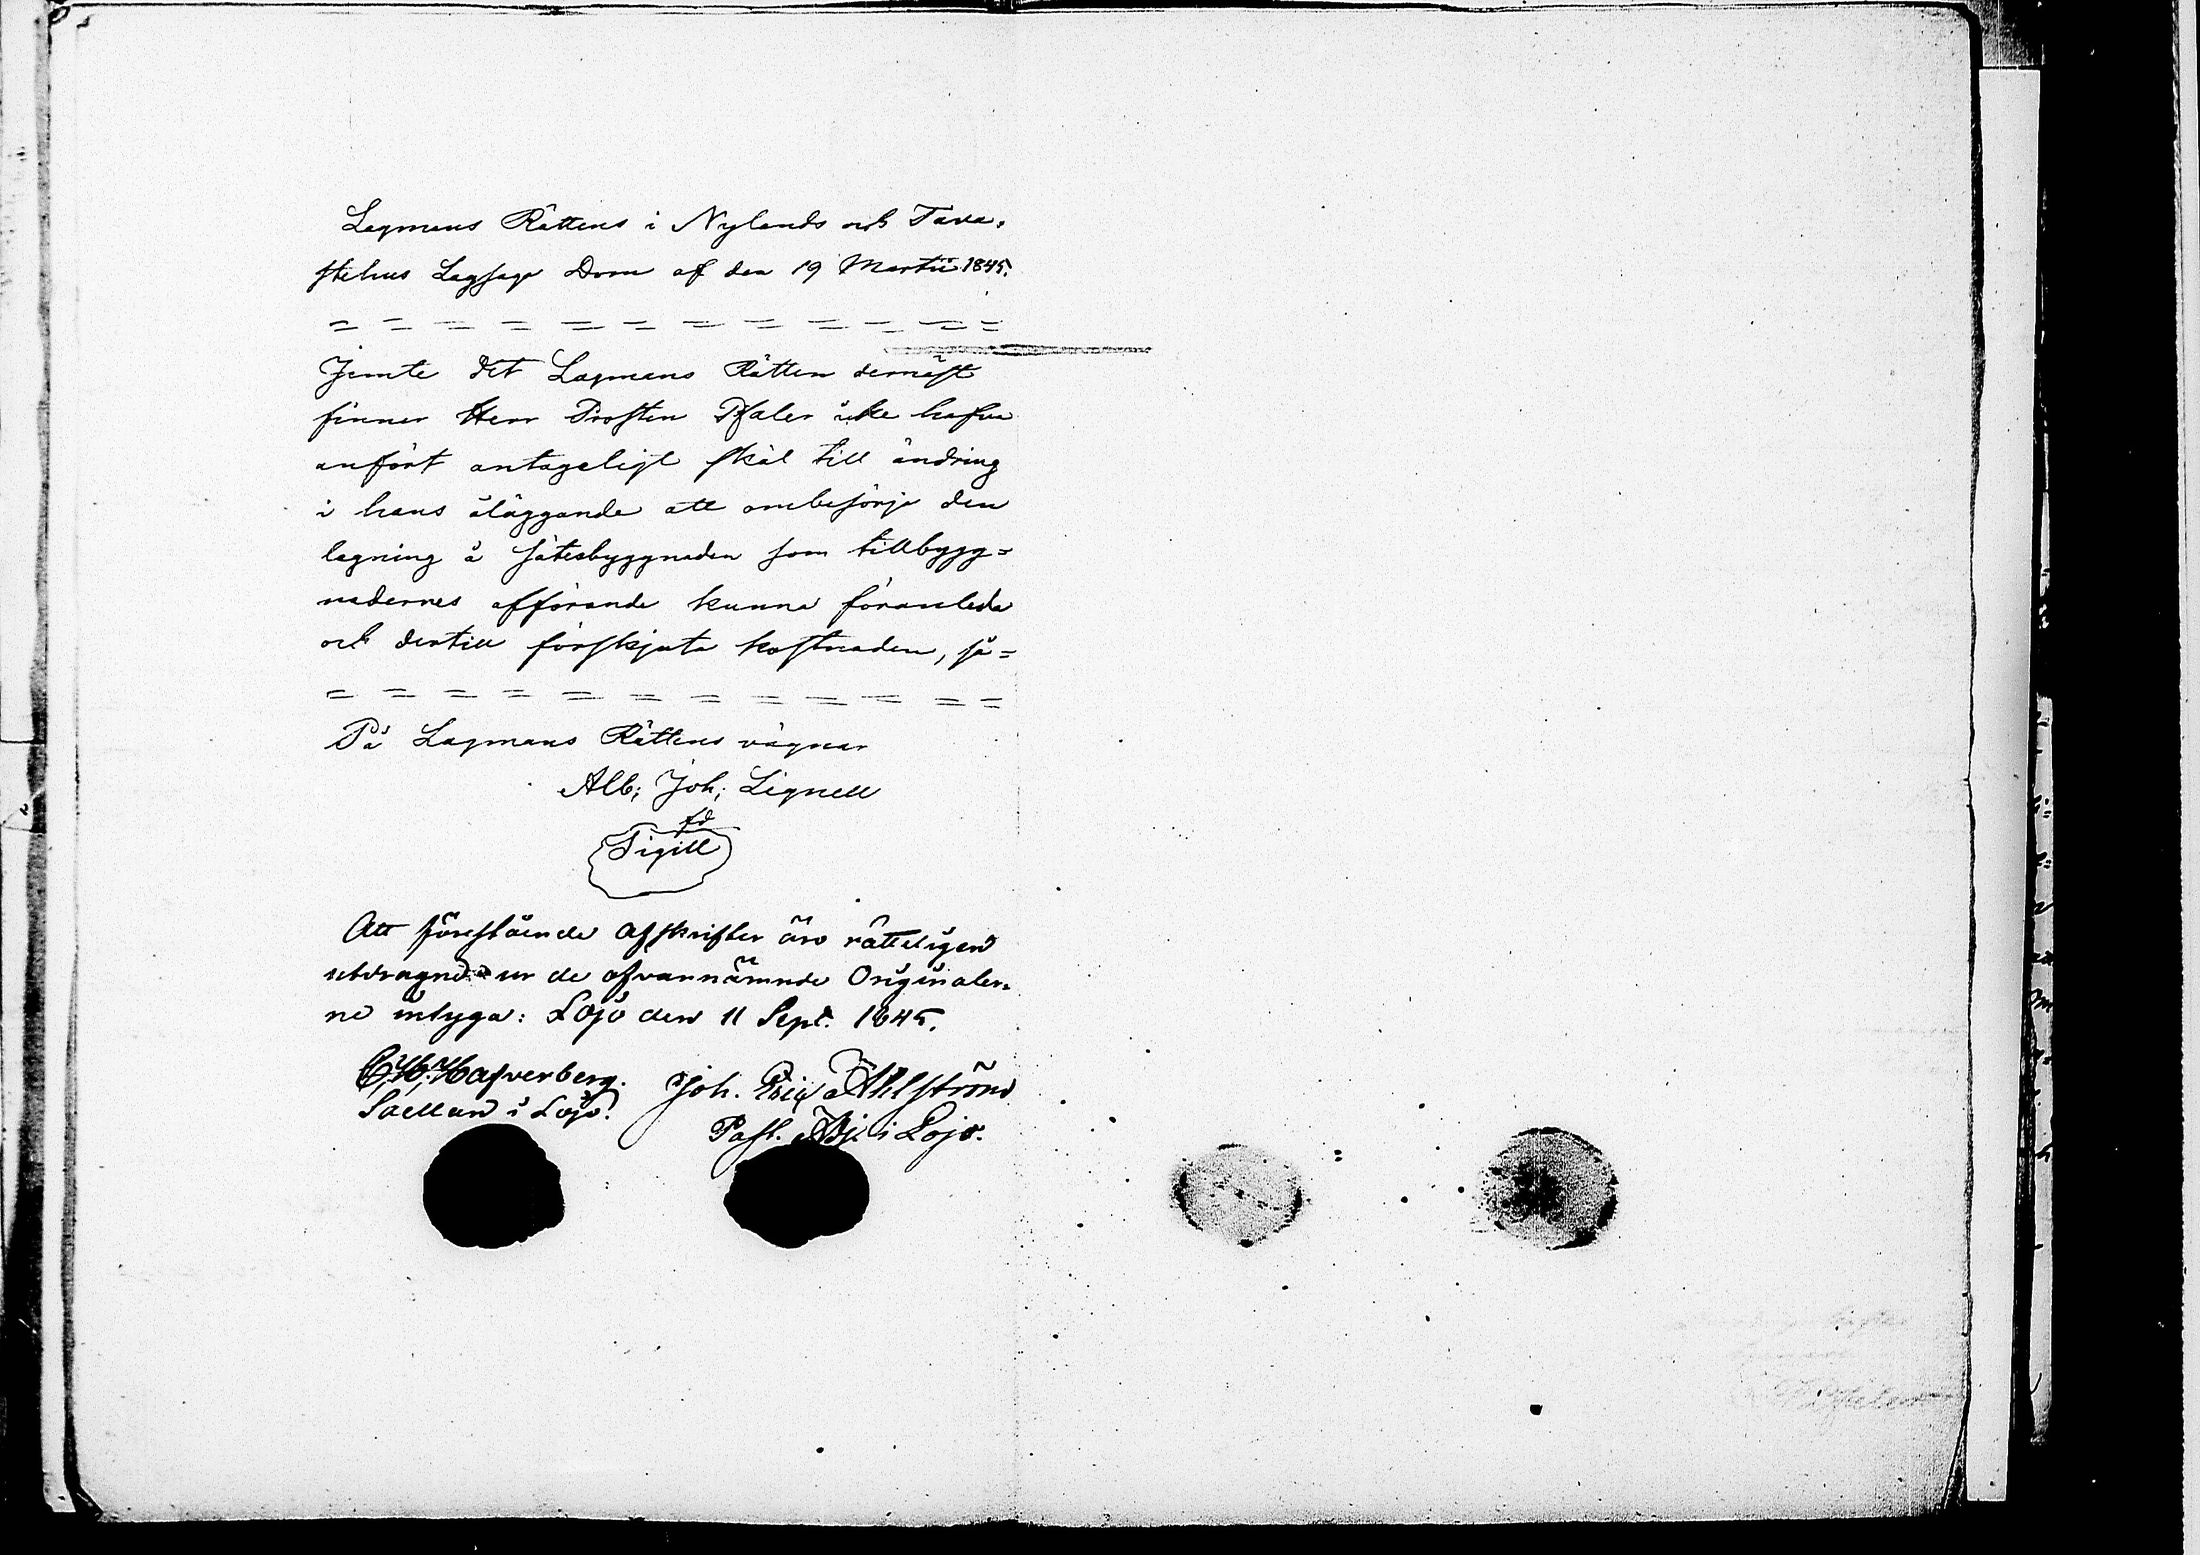 Lagmans Rättens i Nylands och Tava-
stehus Lagsaga Dom af den 19 Martii 1845.
= = = = = = = = = = = =
Jemte det Lagmans Rätten dernäst
finner Herr Prosten Pfaler icke hafva
anfört antageligt skäl till ändring
i hans åläggande att ombesörja den
lagning å sätesbyggnaden som tillbygg=
nadernes afförande kunna föranleda
och dertill förskjuta kostnaden, så=
= = = = = = = = = = = =
På Lagmans Rättens vägnar
Alb; Joh; Lignell
fd
Sigill
Att förestående afskrifter äro rätteligen
utdragne ur de ofvannämnde Originaler-
ne intyga: Lojo den 11 Sept. 1845.
C. H. Hafverberg.
Sacellan i Lojo.
Joh. Eric Ahlström
Past. Adj. i Lojo.